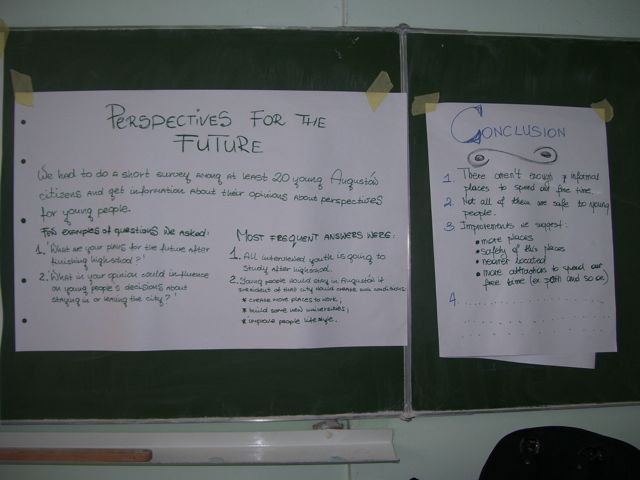 PERSPECTIVES FOR THE
FUTURE
We had to do a short survey among at least 20 young Augustów
citizens and get information about their opinions about perspectives
for young people.
FEW EXAMPLES OF QUESTIONS WE ASKED:
1. 'What are your plans for the future after
finishing highschool?'
2. 'What in your opinion could influence
on young people's decisions about
staying in or leaving the city?'
MOST FREQUENT ANSWERS WERE:
1. All interviewed youth is going to
study after highschool.
2. Young people would stay in Augustów if
president of that city would create new conditions:
* create more places to work;
* build some new universities;
* improve people lifestyle.
CONCLUSION
1. There aren't enough informal
places to spend our free time.
2. Not all of them are safe to young
people.
3. Improvements we suggest:
• more places
• safety of this places
• nearer located
• more attractions to spend our
free time (ex and so on)
4.